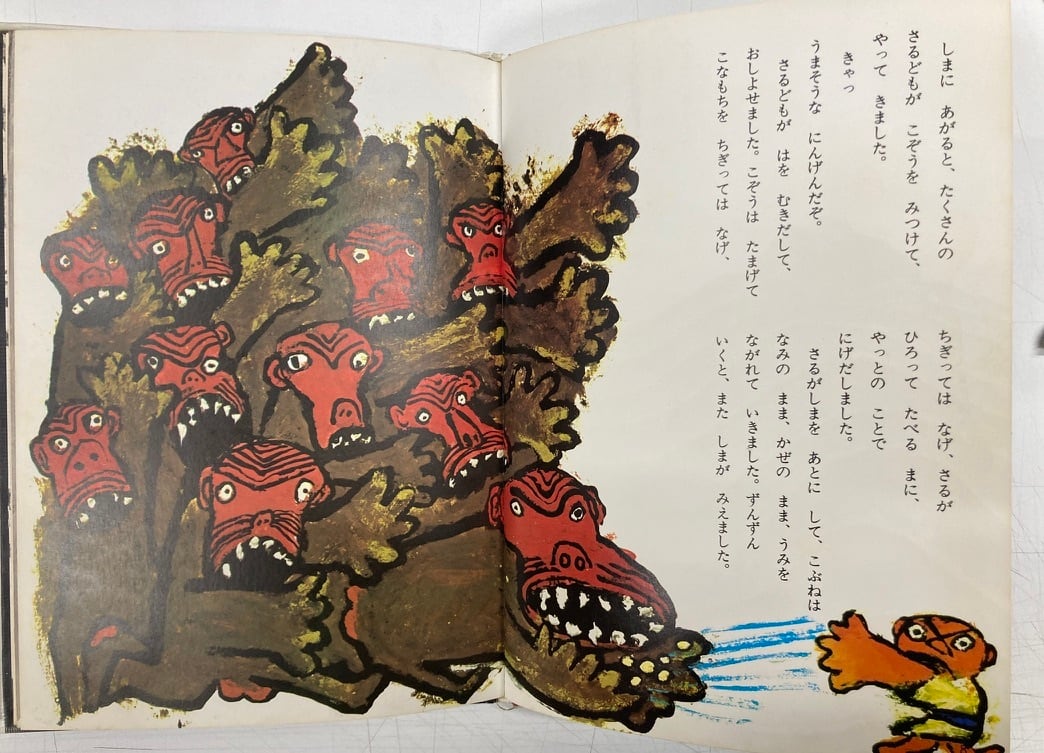 しまに あがると、たくさんの
さるどもが こぞうを みつけて、
やって きました。
きゃっ
うまそうな にんげんだぞ。
さるどもが はを むきだして、
おしよせました。こぞうは たまげて
こなもちを ちぎっては なげ、
ちぎっては なげ、さるが
ひろって たべる まに、
やっとの ことで
にげだしました。
さるがしまを あとに して、こぶねは
なみの まま、かぜの まま、うみを
ながれて いきました。ずんずん
いくと、また しまが みえました。